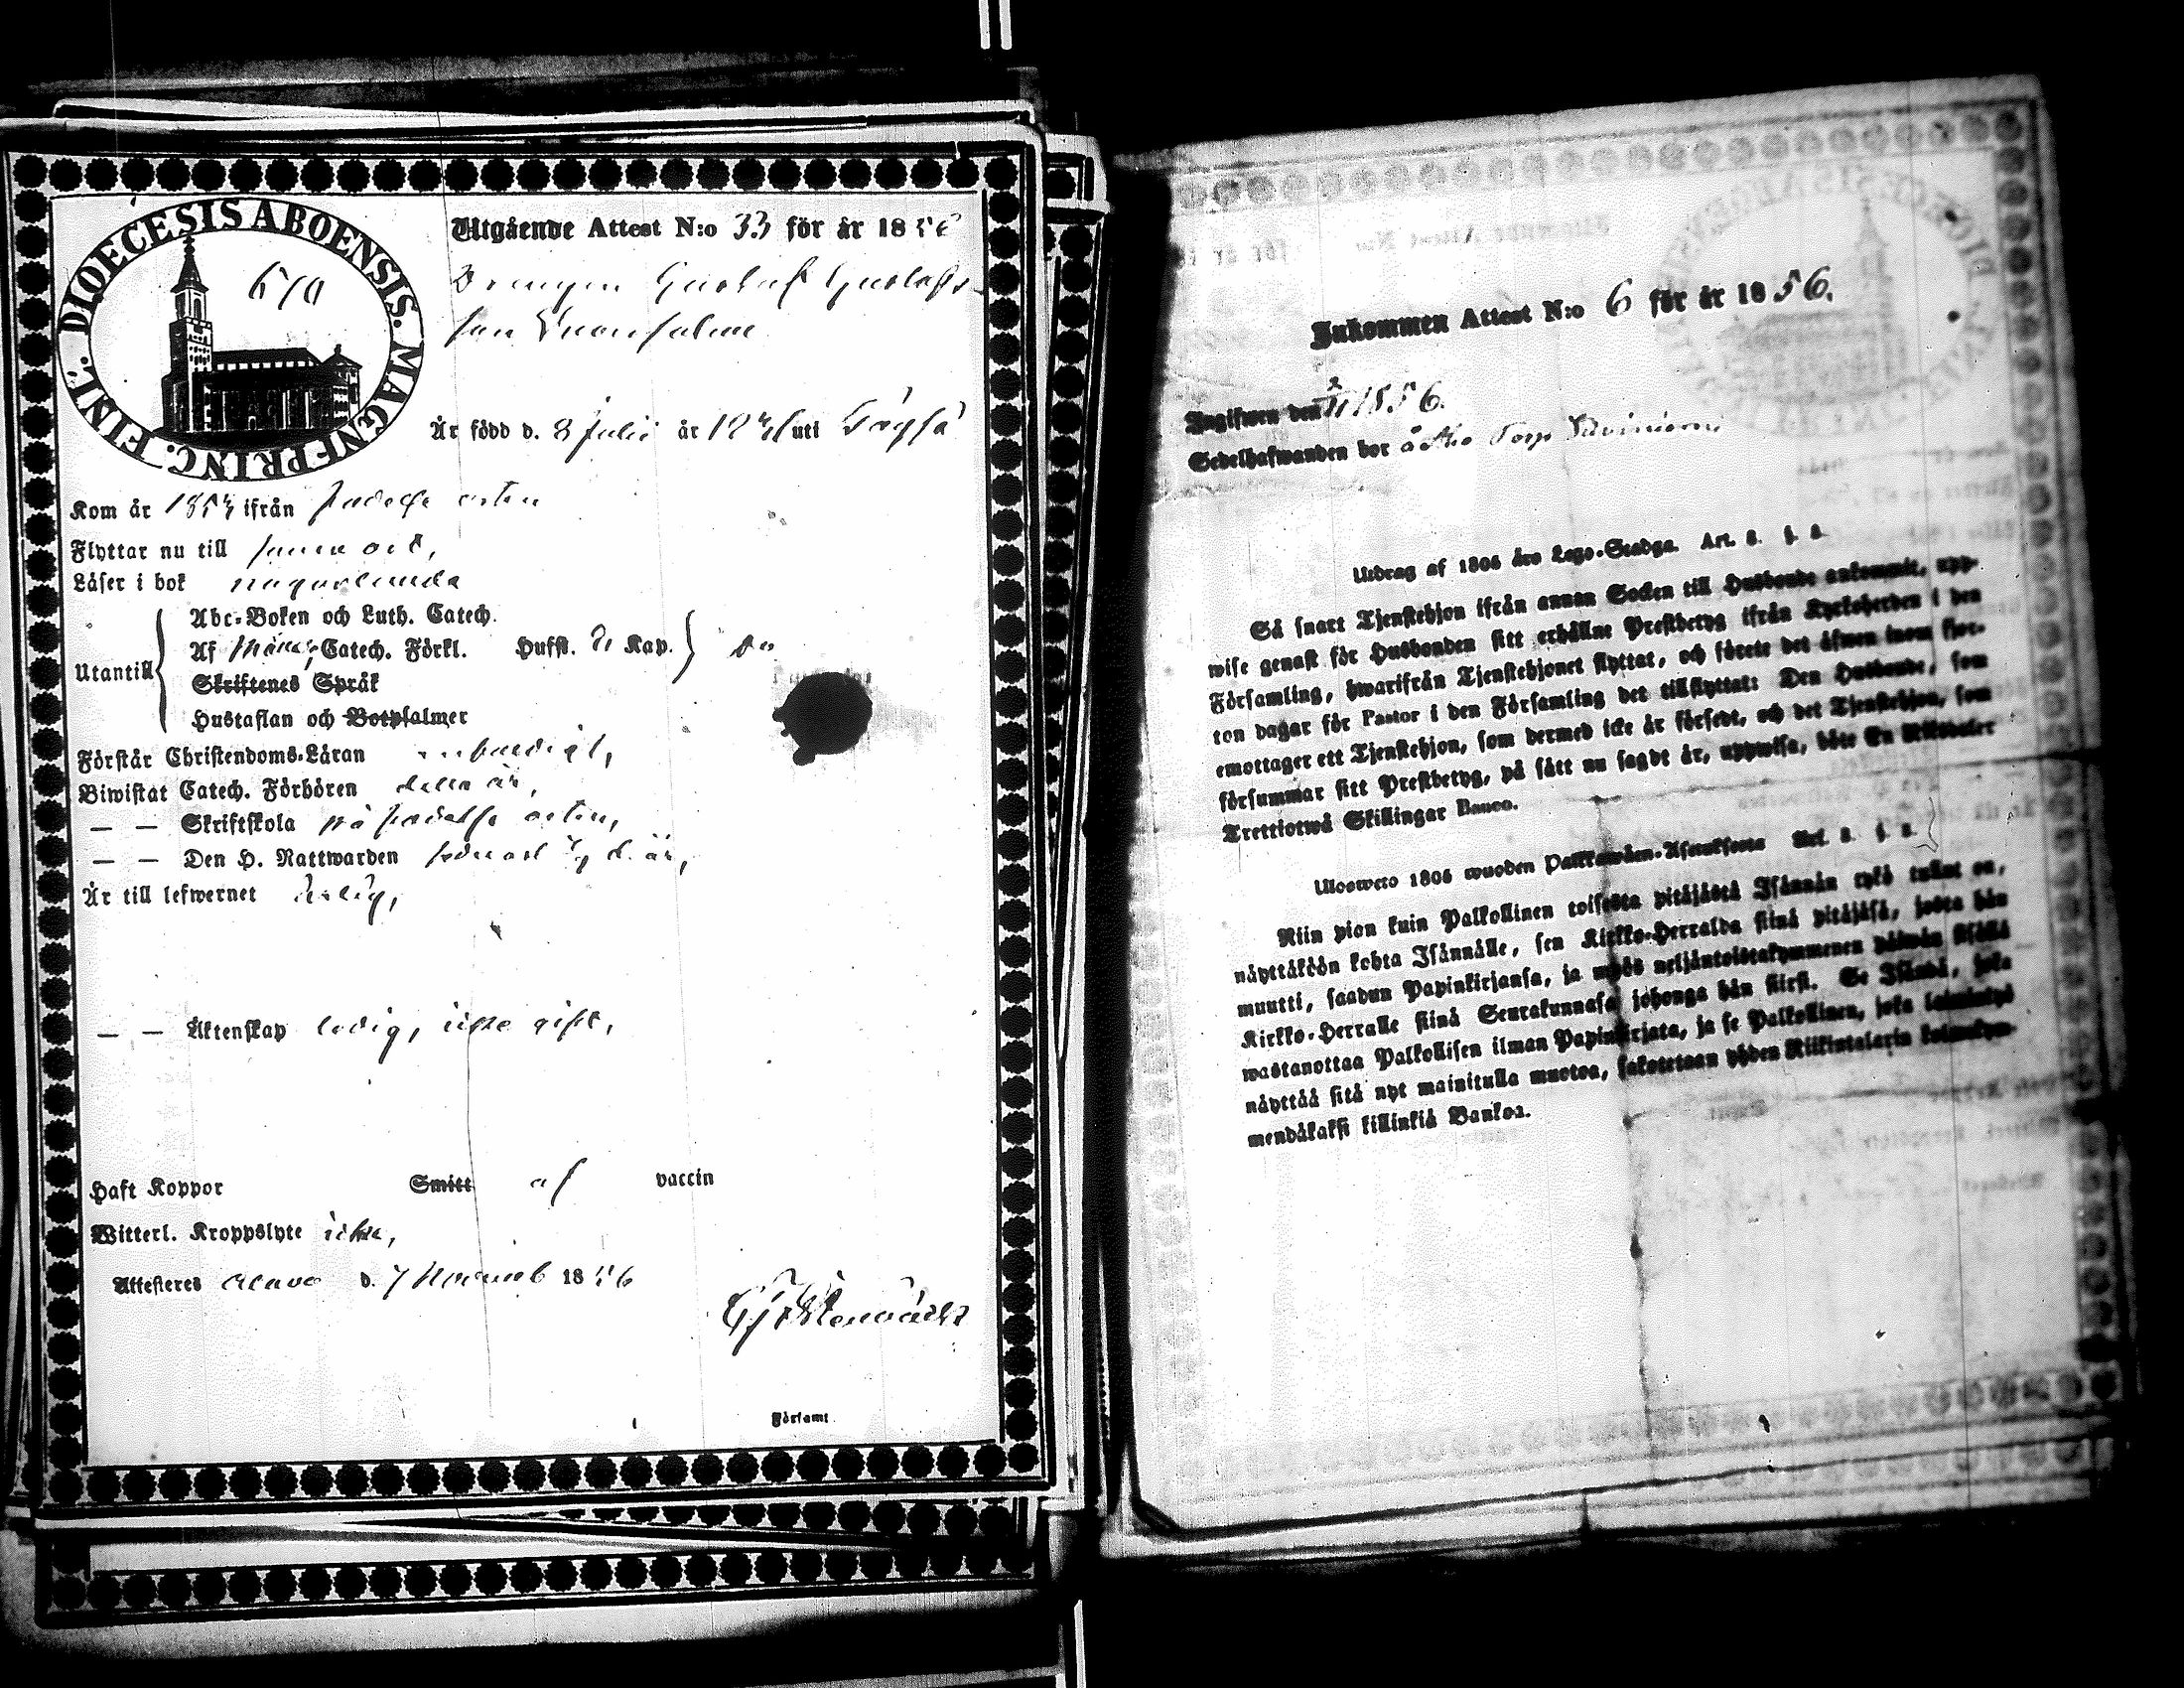 DIOECESIS ABOENSIS. MAGNI PRINC. FINL.
Utgående Attest N:o 33 för år 1856
Drengen Gustaf Gustafs-
son
Är född d. 8 Julii år uti
Kom år ifrån födelse orten
Flyttar nu till samma ort,
Läser i bok någorlunda
Utantill
Abc-Boken och Luth. Catech.
Af Catech. Förkl. Hufst. Kap.
Skriftenes Språk
Hustaflan och Botpsalmer
Förstår Christendoms-Läran
Biwistat Catech. Förhören detta år,
— — Skriftskola på födelse orten,
— — Den H. Nattwarden d. år,
Är till lefwernet ärlig,
— — Äktenskap ledig, icke gift,
Haft Koppor Smitt af vaccin
Witterl. Kroppslyte icke,
Attesteres d. 7 Novemb 1856
Församl
Inkommen Attest N:o 6 för år 1856.
Ingifwen den 1856.
Sedelhafwanden bor å Torp
Utdrag af 1805 års Lego-Stadga. Art. 8. §. 2.
Så snart Tjenstehjon ifrån annan Socken till Husbonde ankommit, upp-
wise genast för Husbonden sitt erhållne Prestbetyg ifrån Kyrkoherden i den
Församling, hwarifrån Tjenstehjonet flyttat, och förete det äfwen inom fjor-
ton dagar för Pastor i den Församling det tillflyttat: Den Husbonde, som
emottager ett Tjenstehjon, som dermed icke är försedt, och det Tjenstehjon, som
försummar sitt Prestbetyg, på sätt nu sagdt är, uppwisa, böte En Riksdaler
Trettiotwå Skillingar Banco.
Uloswero 1805 wuoden Palkkawäen-Asetuksesta Art. 8. §. 2.
Niin pian kuin Palkollinen toisesta pitäjästä Isännän tykö tullut on,
näyttäköön kohta Isännälle, sen Kirkko-Herralda siinä pitäjäsä, josta hän
muutti, saadun Papinkirjansa, ja myös neljäntoistakymmenen päiwän sisällä
Kirkko-Herralle siinä Seurakunnasa johonga hän siirsi. Se Isändä, joka
wastanottaa Palkollisen ilman Papinkirjata, ja se Palkollinen, joka laiminlyö
näyttää sitä nyt mainitulla muotoa, sakotetaan yhden Riikintalarin kolmekym-
mendäkaksi killinkiä Bankoa.